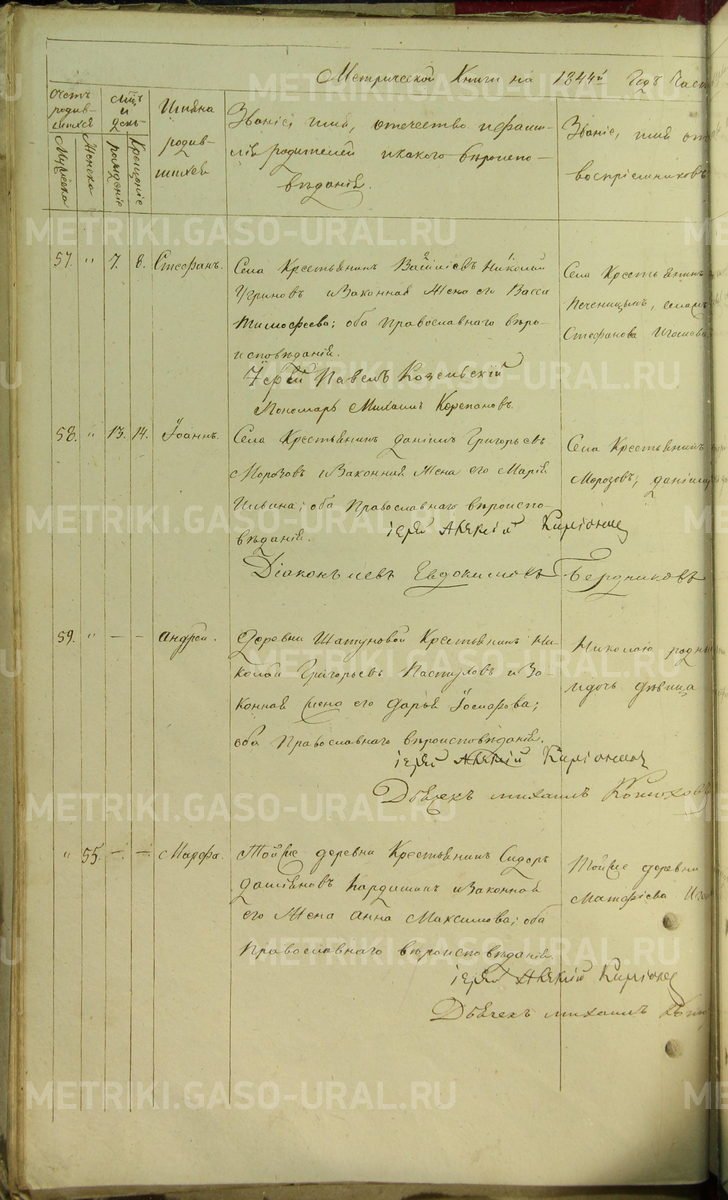 Метрической Книги на 1844й Годъ Част
Счетъ родив-шихся
Мужеска
Женска
мц̃ъ и день
рожденіе
Крещеніе
Имяна
родив-
шихся
Званіе, имя, отечество и фами-
лія родителей и какого вѣроиспо-
вѣданія.
Званіе, имя от
воспріемниковъ
57. " 7. 8. Стефанъ.
Села Крестьянинъ Василіевъ
и Законная Жена его Васса
Тимофеева; оба Православнаго вѣро-
исповѣданія.
Іерей Павелъ Козельскій
Пономарь Михаилъ Корепановъ.
Села Крестьянинъ
Печеницынъ,
Стефанова
58. " 13. 14. Іоаннъ.
Села Крестьянинъ Даніилъ Григорьевъ
Морозовъ и Законная Жена его Марія
Ильина; оба Православнаго вѣроиспо-
вѣданія.
іерей
Діаконъ Левъ Евдокимовъ Бердниковъ
Села Крестьянинъ
Морозовъ;
59. " — — Андрей.
Деревни Шатуновой Крестьянинъ Ни-
колай Григорьевъ Пастуховъ и За-
конная Жена его Дарья Іосифова;
оба Православнаго вѣроисповѣданія.
іерей
Дьячекъ Михаилъ Конюховъ
Николаю родн
дочь дѣвица
" 55. — — Марфа.
Той же деревни Крестьянинъ Сидоръ
Даміяновъ Кардашинъ и Законная
его Жена Анна Максимова; оба
Православнаго вѣроисповѣданія.
іерей
Дьячекъ Михаилъ
Той же деревни
Матфіева
METRIKI.GASO-URAL.RU